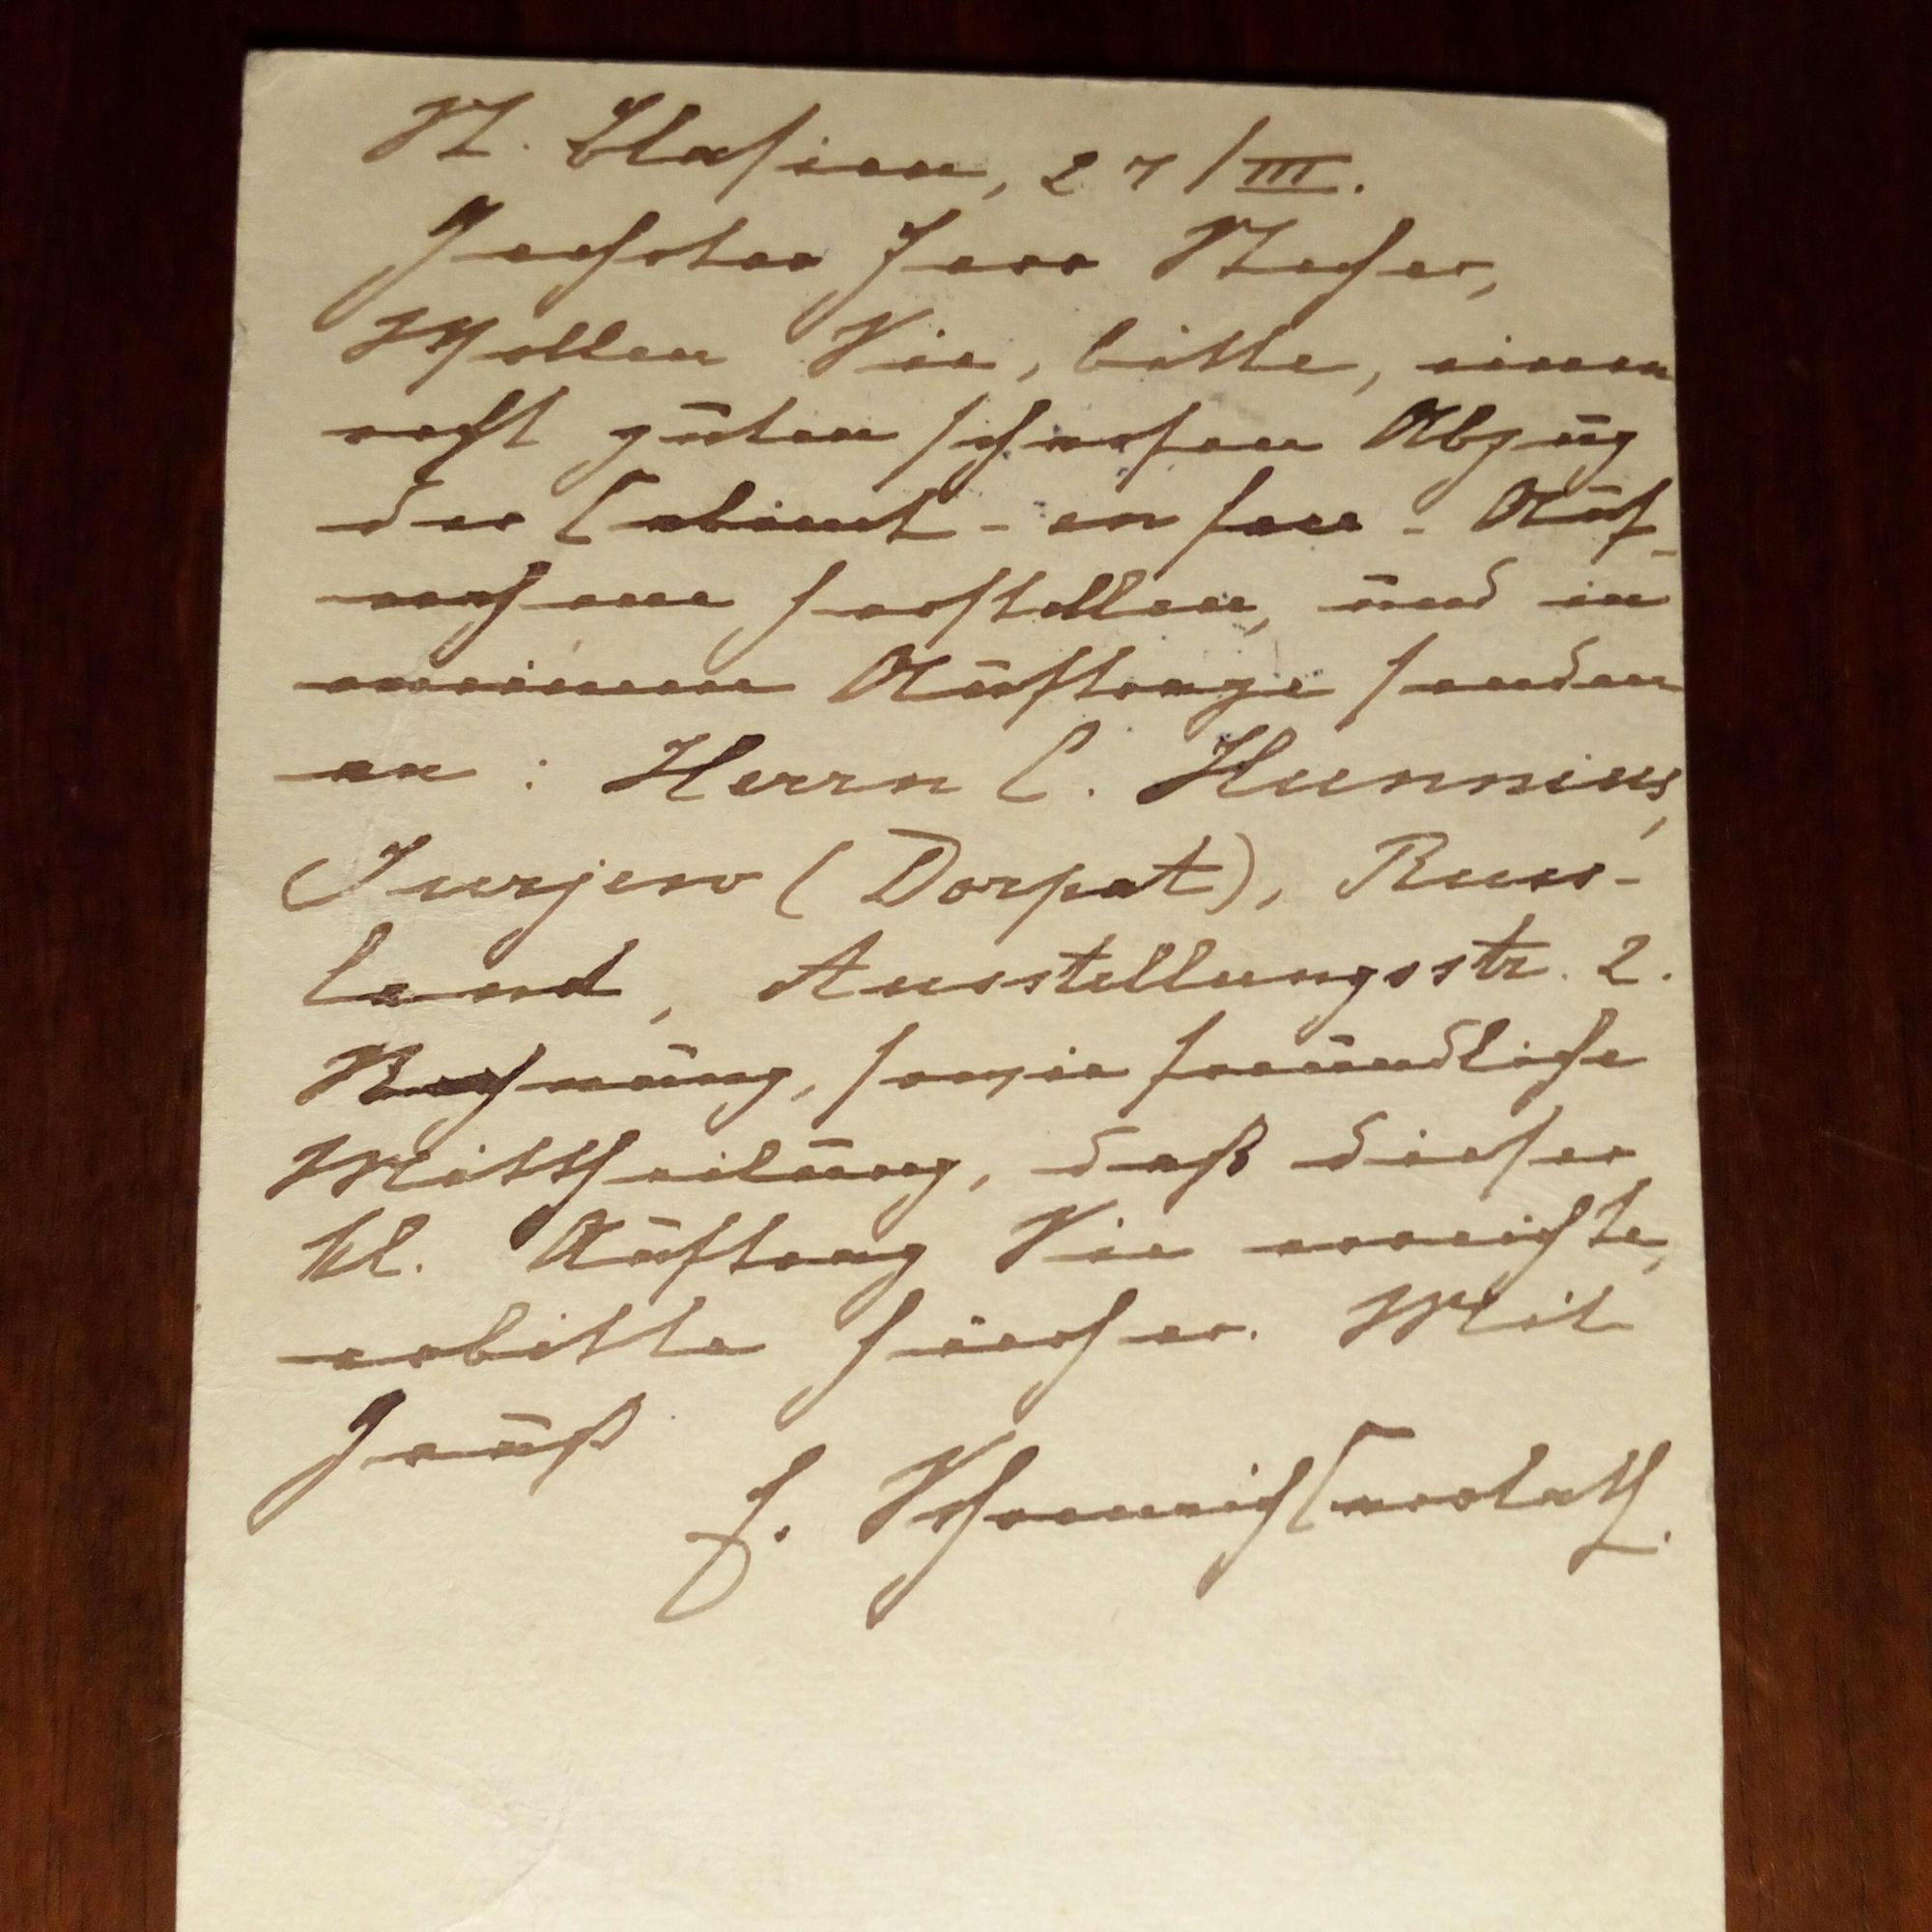 St. Blasien, 27/III.
Geehrter Herr Mester,
Wollen Sie, bitte, einen
recht guten scharfen Abzug
der Cabinet-en face-Auf-
nahme herstellen, und in
meinem Auftrage senden
an: Herrn C. Hunnius,
Jurjew (Dorpat), Russ-
land, Ausstellungsstr. 2.
Rechnung, sowie freundliche
Mittheilung, daß dieser
kl. Auftrag Sie erreichte,
erbitte hierher. Mit
Gruß
E. Schoenaich Carolath.